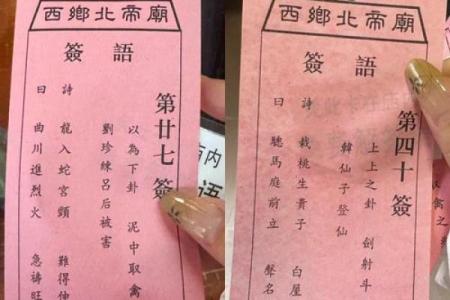 西鄉北帝廟
簽語
第廿七簽
以為下卦 泥中取禽
劉珍練呂后被害
詩曰
龍入蛇宮頸 難得伸
曲川進烈火 急禱旺
内
语
西鄉北帝廟
簽語
第四十簽
上上之卦 劍射斗
韓仙子登仙
詩曰
栽桃生貴子 白屋
聽馬庭前立 聲名